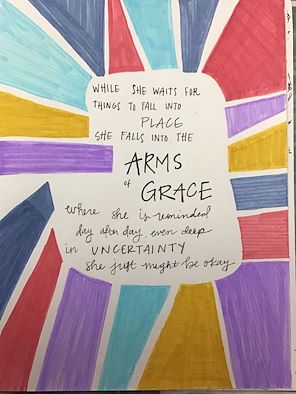 WHILE SHE WAITS FOR
THINGS TO FALL INTO
PLACE
SHE FALLS INTO THE
ARMS
of
GRACE
where she is reminded
day after day, even deep
in UNCERTAINTY
she just might be okay